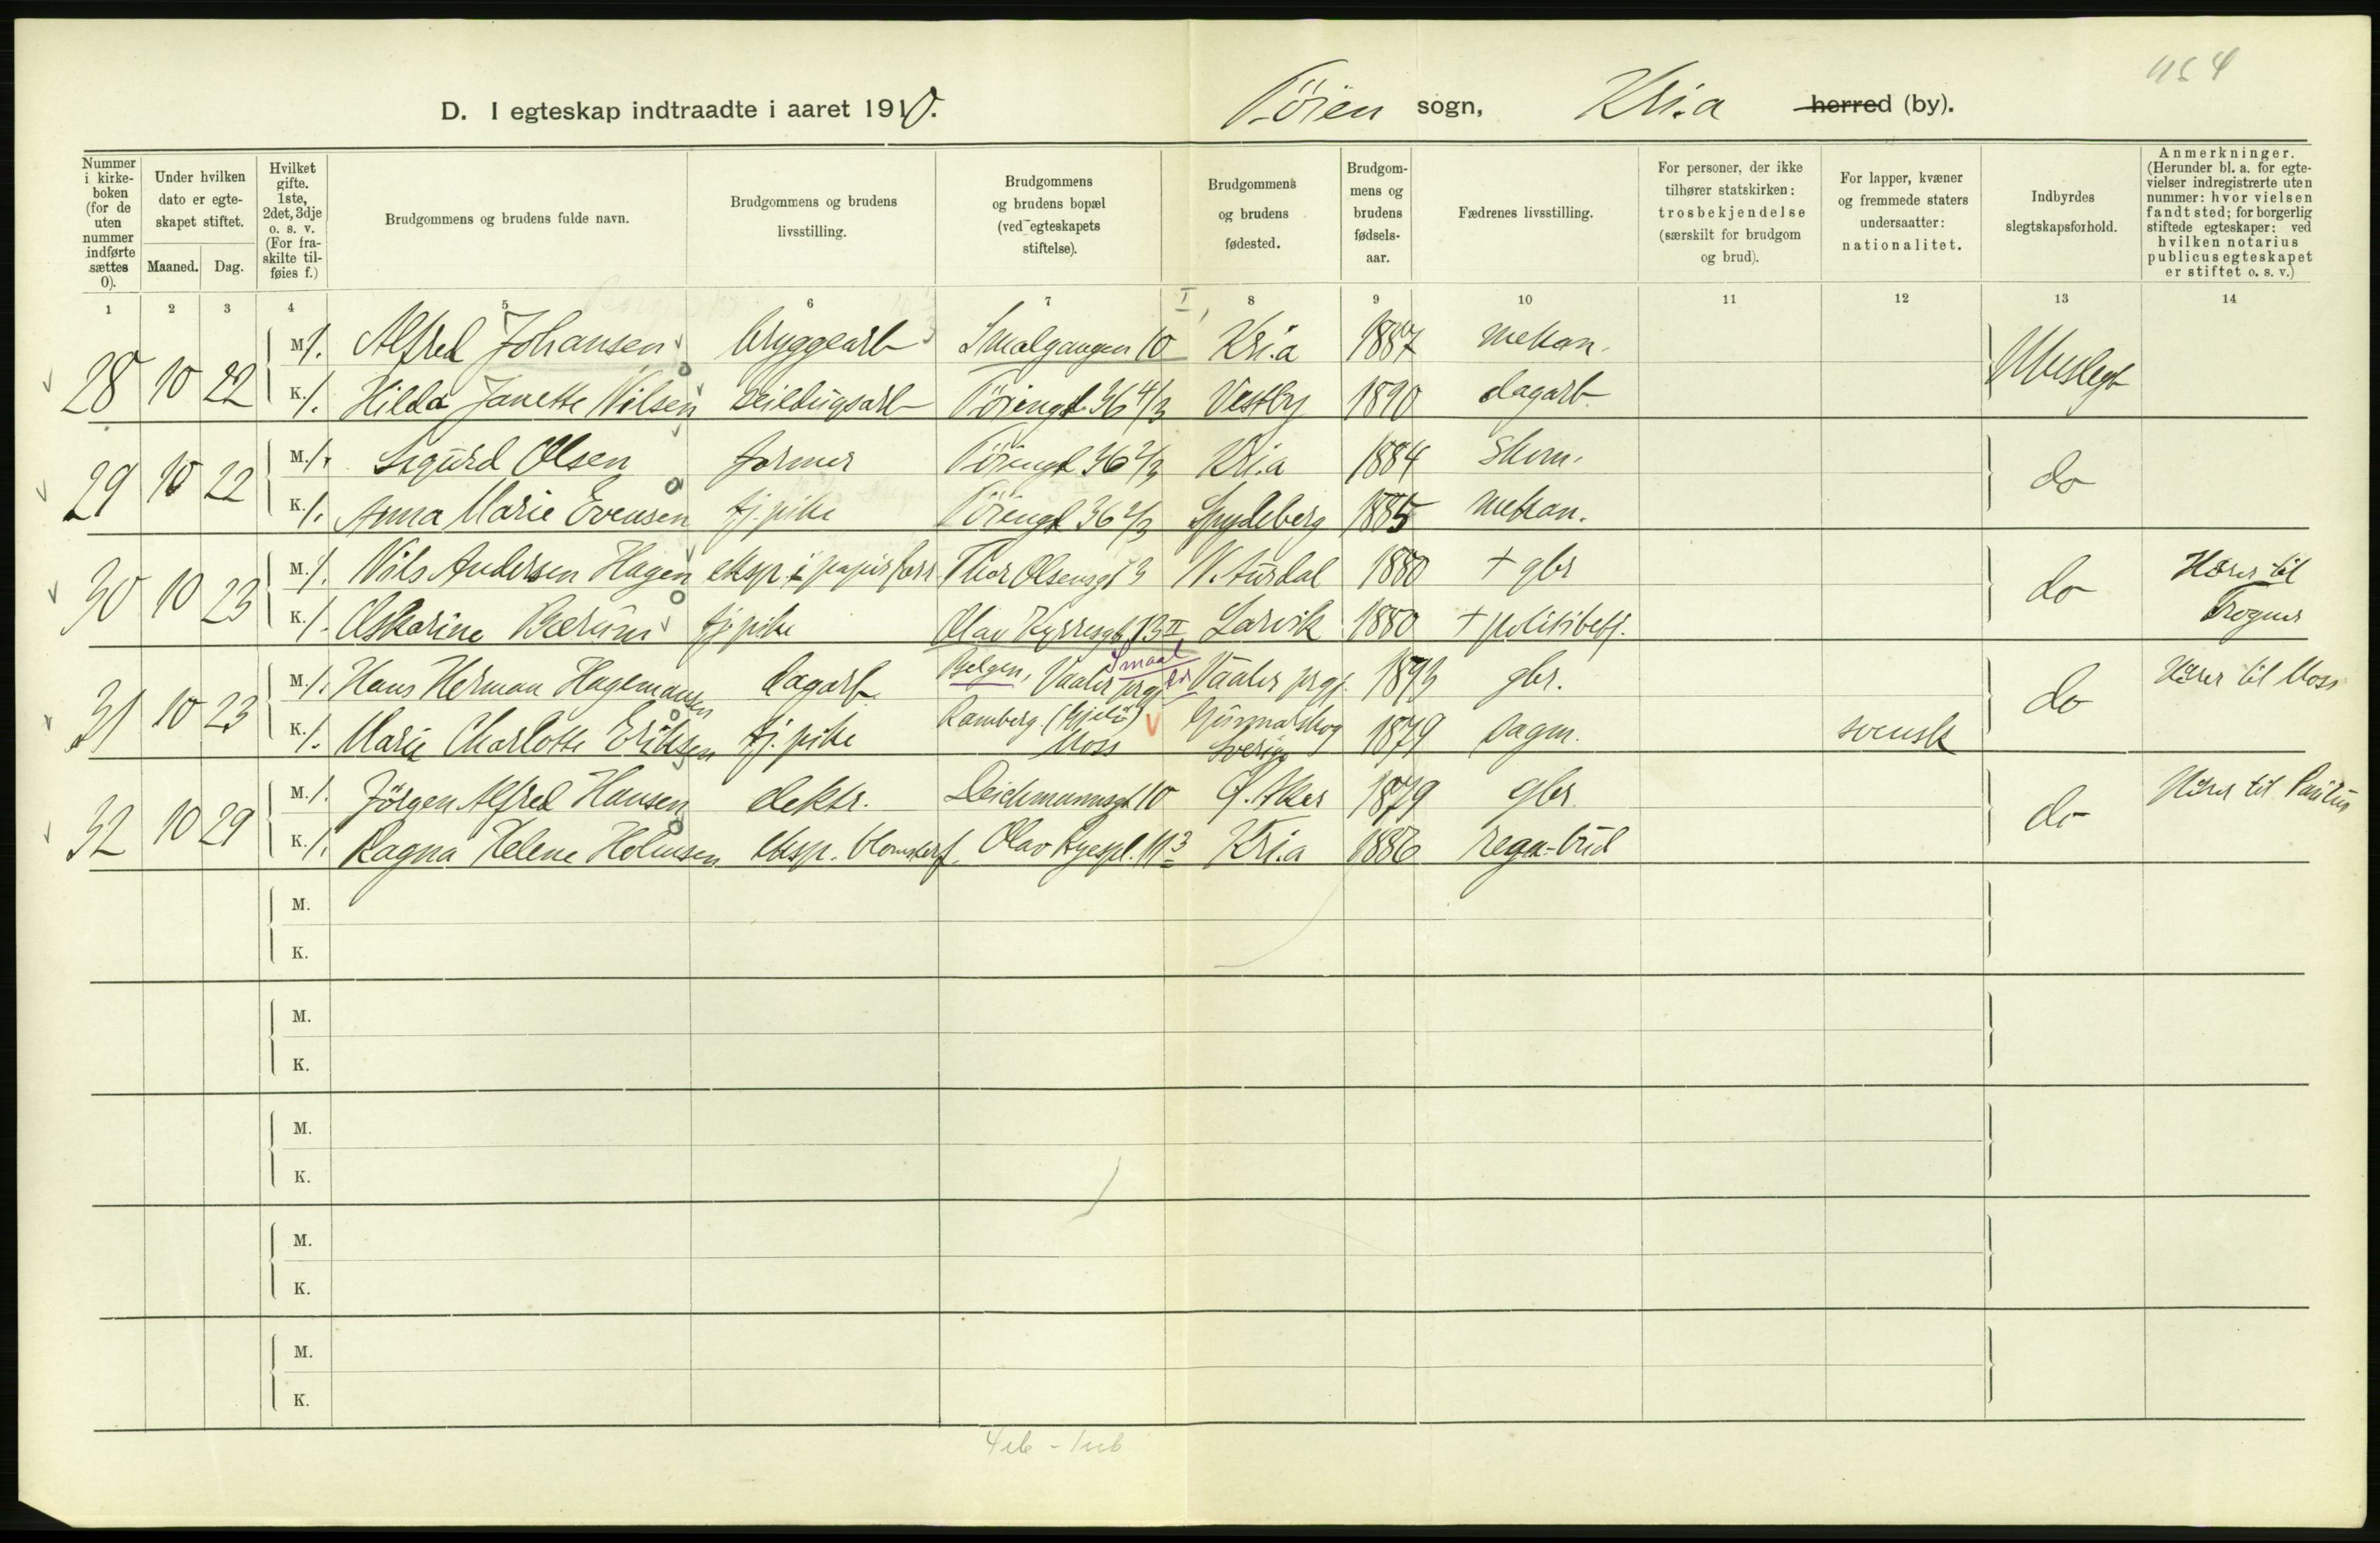 1154
D. I egteskap indtraadte i aaret 1910. Töien sogn, Kri.a herred (by).
Nummer i kirkeboken (for de uten nummer indførte sættes 0).
Under hvilken dato er egteskapet stiftet.
Maaned. Dag.
Hvilket gifte. 1ste, 2det, 3dje o. s. v. (For fraskilte tilføies f.)
Brudgommens og brudens fulde navn.
Brudgommens og brudens livsstilling.
Brudgommens og brudens bopæl (ved egteskapets stiftelse).
Brudgommens og brudens fødested.
Brudgommens og brudens fødselsaar.
Fædrenes livsstilling.
For personer, der ikke tilhører statskirken: trosbekjendelse (særskilt for brudgom og brud).
For lapper, kvæner og fremmede staters undersaatter: nationalitet.
Indbyrdes slegtskapsforhold.
Anmerkninger. (Herunder bl. a. for egtevielser indregistrerte uten nummer: hvor vielsen fandt sted; for borgerlig stiftede egteskaper: ved hvilken notarius publicus egteskapet er stiftet o. s. v.)
1 2 3 4 5 6 7 8 9 10 11 12 13 14
28 10 22 M. 1. Alfred Johansen bryggearb Smalgangen 10 I Kri.a 1887 mekan. Ubeslegt
K. 1. Hilda Janette Nilsen seildugsarb Töiengt. 36 4/3 Vestby 1890 dagarb.
29 10 22 M. 1. Sigurd Olsen former Töiengt 36 2/3 Kri.a 1884 skom. do
K. 1. Anna Marie Evensen tj. pike Töiengt 36 2/3 Spydeberg 1885 mekan.
30 10 23 M. 1. Nils Andersen Hagen eksp. i papirforr Thor Olsensgt 3 N. Aurdal 1880 + gbr do Hører til
K. 1. Oskarine Bærum tj. pike Olav Kyrresgt 13 II Larvik 1880 + politibetj. Frogner
31 10 23 M. 1. Hans Herman Hagemansen dagarb. Bølgen, Vaaler prgj. Smaal Vaaler prgj. 1873 gbr. do Hører til Moss
K. 1. Marie Charlotte Eriksen tj. pike Ramberg. (Gjelö) Moss Gunnarskog Sverige 1879 dagm. svensk
32 10 29 M. 1. Jörgen Alfred Hansen elektr. Deichmannsgt 10 Ö. Aker 1879 gbr. do Hører til Paulus
K. 1. Ragna Helene Holmsen eksp. blomsterf. Olav Ryespl. 11 3 Kri.a 1886 regn=bud
M.
K.
M.
K.
M.
K.
M.
K.
M.
K.